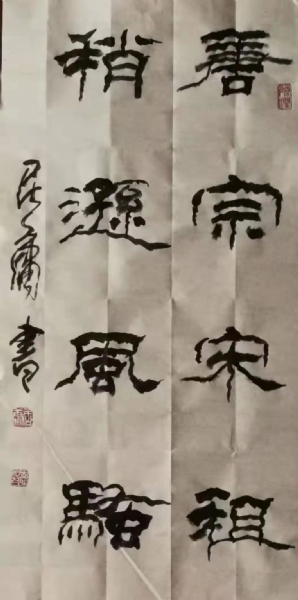 唐宗宋祖
稍遜風騷
書